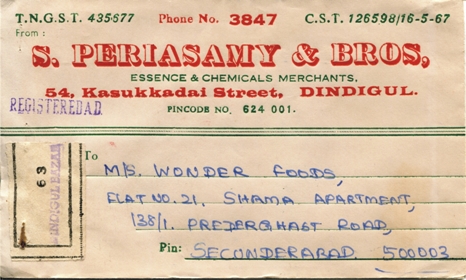 T.N.G.S.T. 435677 Phone No. 3847 C.S.T. 126598/16-5-67
From :
S. PERIASAMY & BROS,
ESSENCE & CHEMICALS MERCHANTS,
54, Kasukkadai Street, DINDIGUL.
REGISTEREDAD
PINCODE NO. 624 001.
63
DINDIGUL BAZAAR
To
M/S. WONDER FOODS,
FLAT NO. 21, SHAMA APARTMENT,
138/1. PREDERGHAST ROAD,
Pin: SECUNDERABAD. 500003